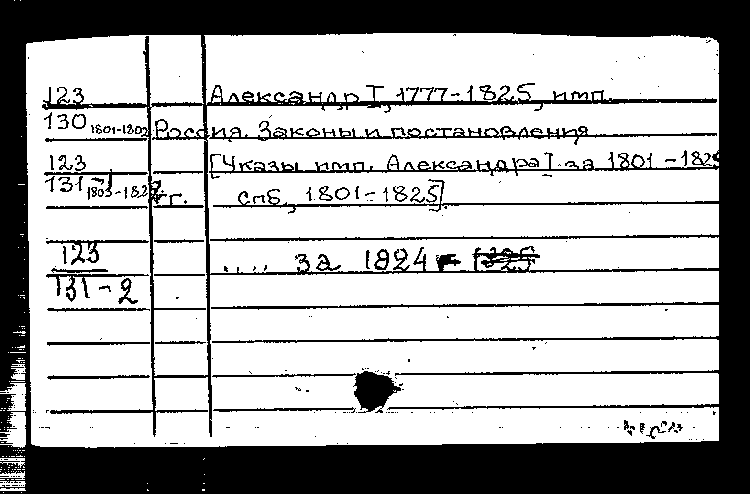 123 Александр I, 1777-1825, имп.
130 1801-1802 Россия. Законы и постановления
123 [Указы имп. Александра I за 1801-1825
131-1 1803-182 гг. СПб., 1801-1825].
123
131-2 .... за 1824